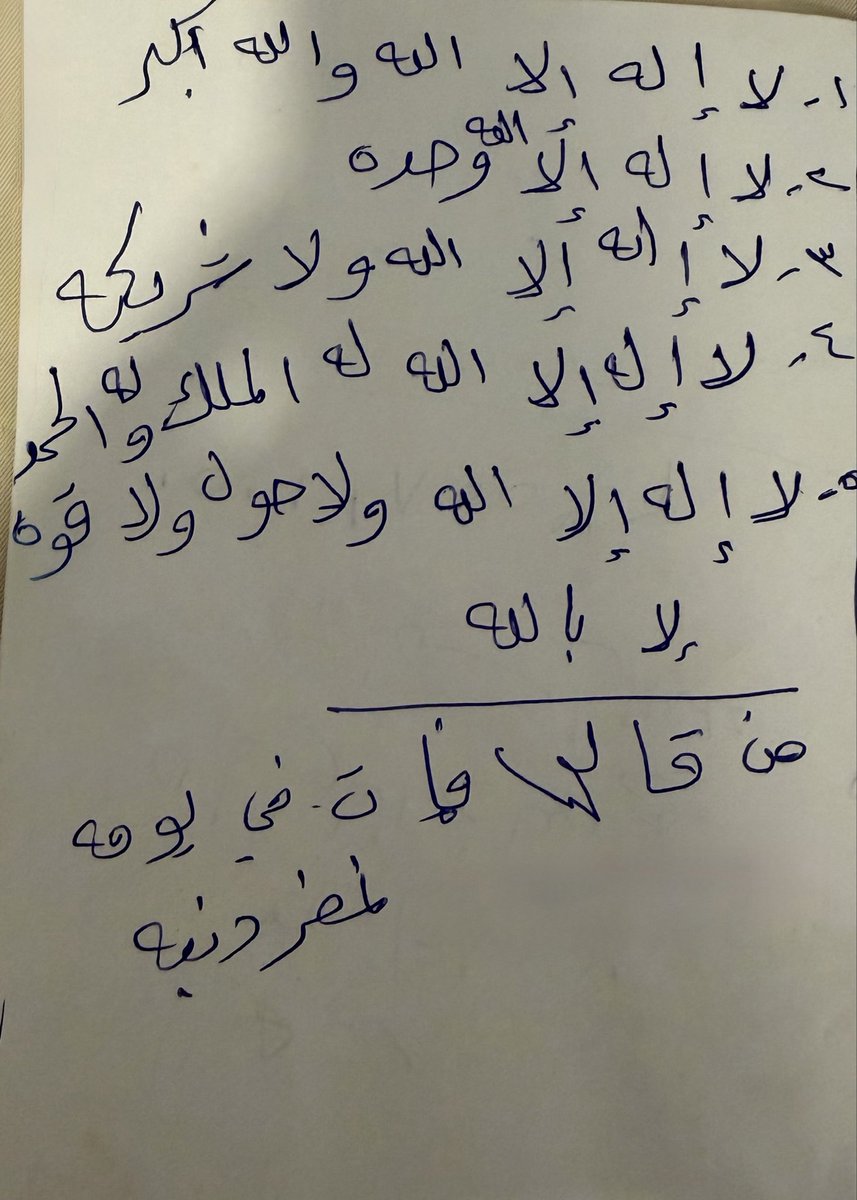 ١- لا إله إلا الله والله أكبر
٢- لا إله إلا الله وحده
٣- لا إله إلا الله ولا شريك له
٤- لا إله إلا الله له الملك وله الحمد
٥- لا إله إلا الله ولا حول ولا قوة
إلا بالله
من قالها فمات في يومه
غفر ذنبه